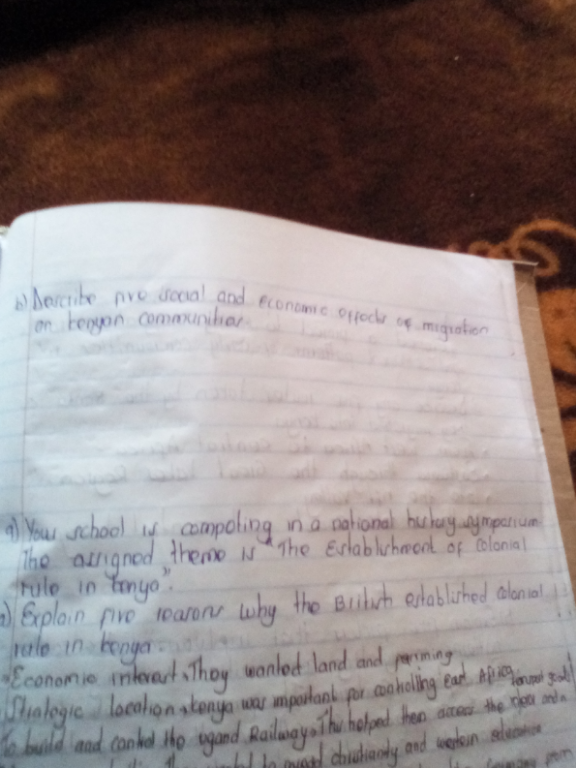 b) Describe five social and economic effects of migration
on kenyan communities
9) Your school is competing in a national history symposium
The assigned theme is "The Establishment of colonial
rule in kenya".
a) Explain five reasons why the British established colonial
rule in kenya.
Economic interest, They wanted land and farming
Strategic location, kenya was important for controlling East Africa
To build and control the ugand Railway, This helped them access the
christianity and western education